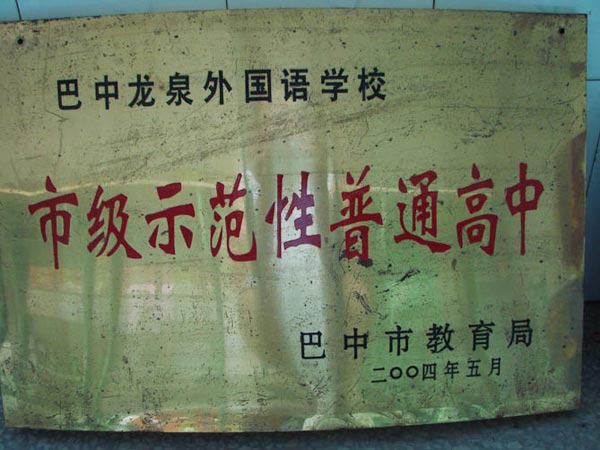 巴中龙泉外国语学校
市级示范性普通高中
巴中市教育局
二〇〇四年五月